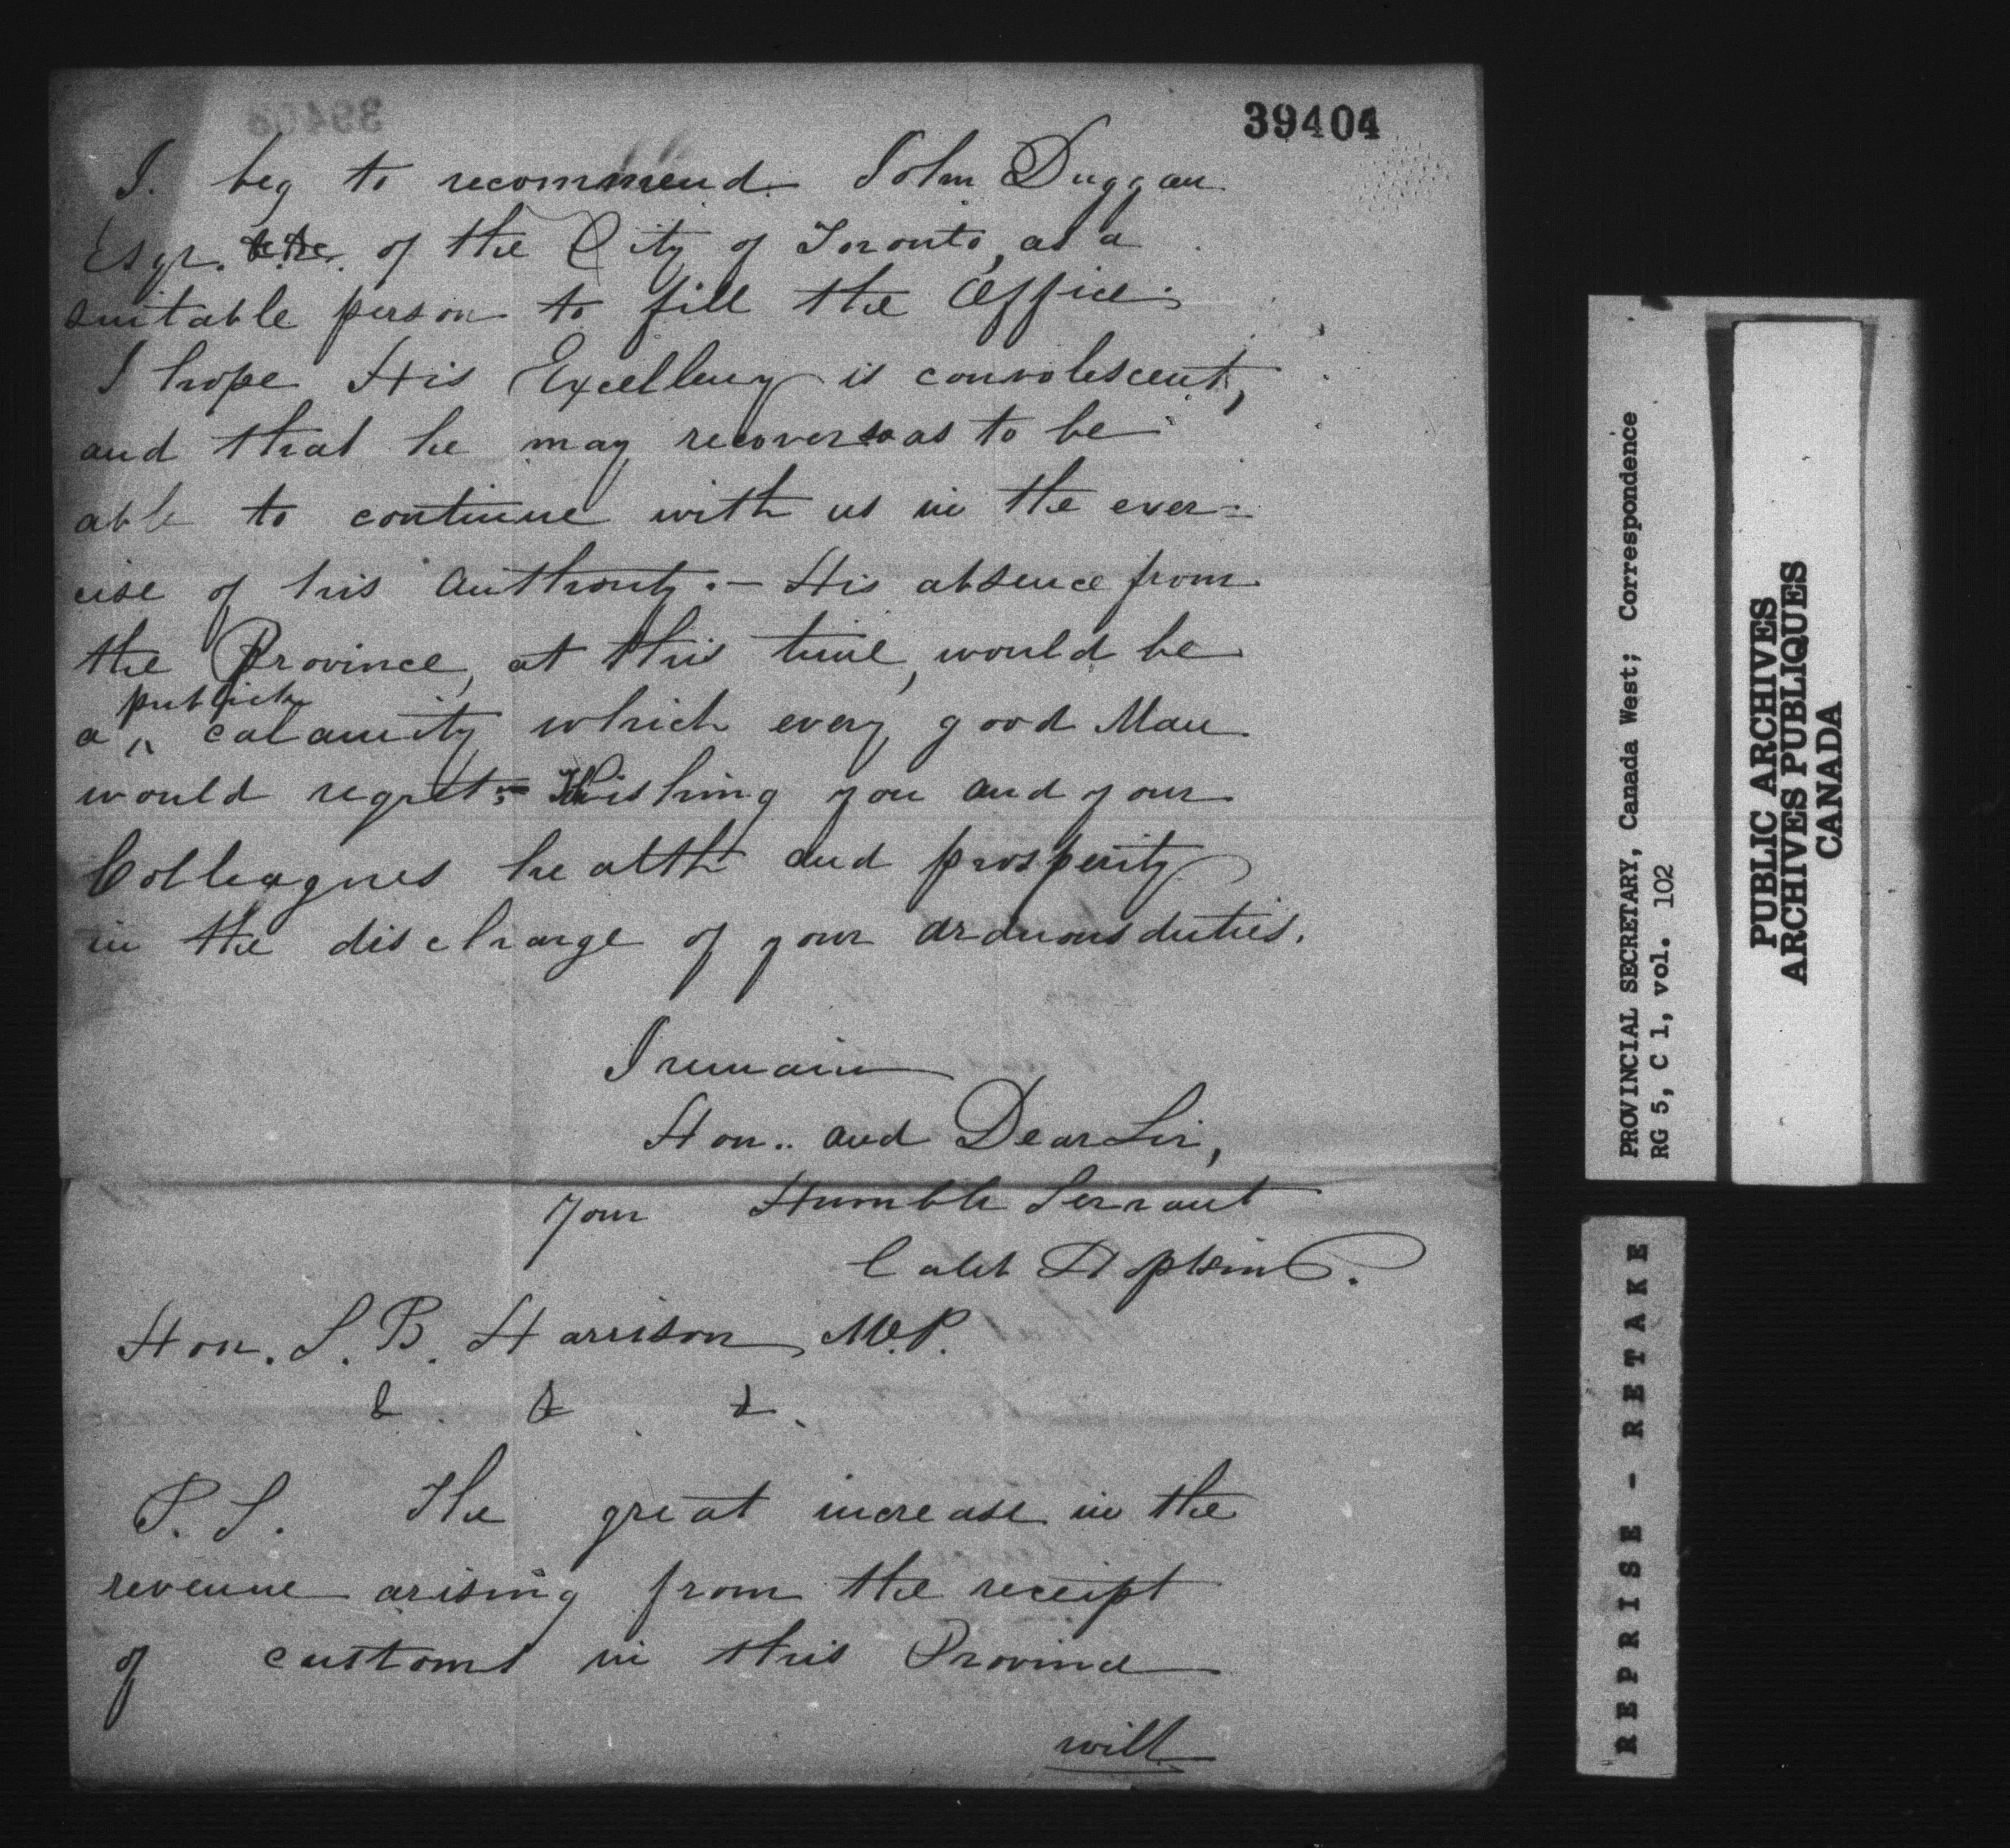 39404
I. beg to recommend John Duggan
Esqr. of the City of Toronto, as a
suitable person to fill the Office
I hope His Excellency is convolescent,
and that he may recover so as to be
able to continue with us in the exer=
cise of his Authority. – His absence from
the Province, at this time, would be
a publick calamity which every good Man
would regret; – Wishing you and your
Colleagues health and prosperity
in the discharge of your arduous duties.
I remain
Hon.. and Dear Sir,
Your Humble Servant
Caleb Hopkins.
Hon. S. B. Harrison M.P.
& . & . & .
P. S. The great increase in the
revenue arising from the receipt
of customs in this Province
will
PROVINCIAL SECRETARY, Canada West; Correspondence
RG 5, C 1, vol. 102
PUBLIC ARCHIVES
ARCHIVES PUBLIQUES
CANADA
REPRISE - RETAKE